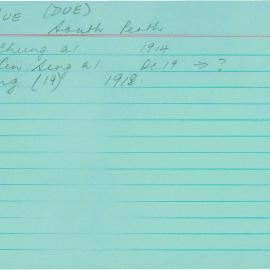 UE (DUE)
South Perth
Chung al 1914
Sing al Dec 19 → ?
ng (19) 1918